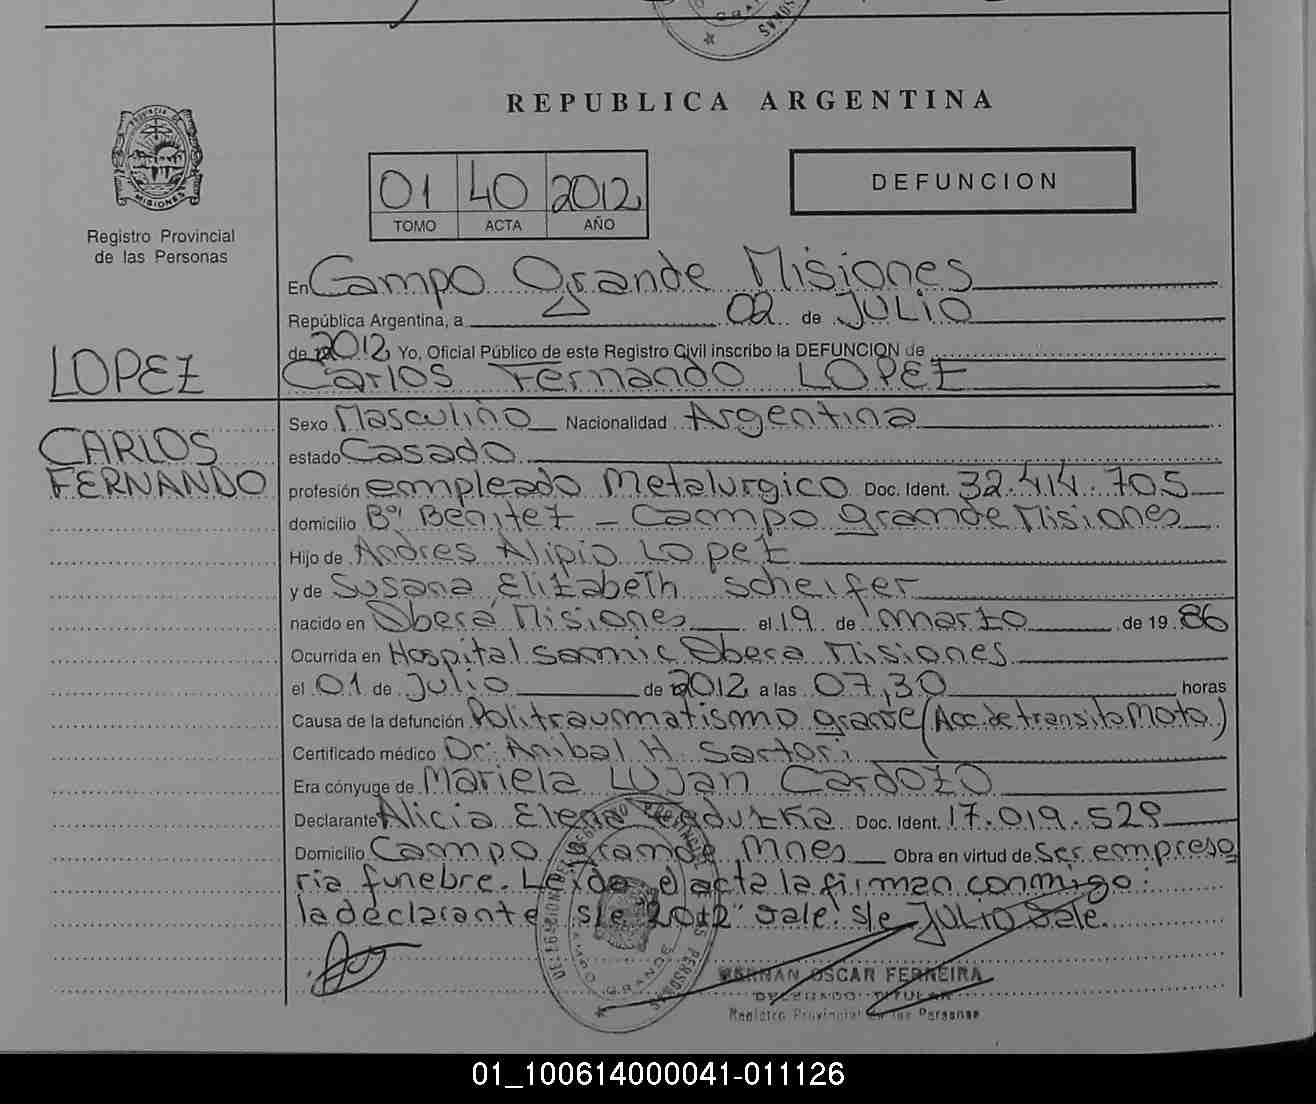 REPUBLICA ARGENTINA
MISIONES
Registro Provincial
de las Personas
01 40 2012
TOMO ACTA AÑO
DEFUNCION
En Campo Grande Misiones
República Argentina, a 02 de JULIO
de 2012 Yo, Oficial Público de este Registro Civil inscribo la DEFUNCION de
Carlos Fernando LOPEZ
LOPEZ
CARLOS
FERNANDO
Sexo Masculino Nacionalidad Argentina
estado Casado
profesión empleado Metalurgico Doc. Ident. 32.414.705
domicilio Bº Benitez - Campo grande Misiones
Hijo de Andres Alipio Lopez
y de Susana Elizabeth Scheifer
nacido en Oberá Misiones el 19 de marzo de 19 86
Ocurrida en Hospital Samic Obera Misiones
el 01 de Julio de 2012 a las 07,30 horas
Causa de la defunción Politraumatismo grave (Acc. de transito Moto)
Certificado médico Dr. Anibal H. Sartori
Era cónyuge de Mariela LUJan Cardozo
Declarante Alicia Elena Doc. Ident. 17.019.529
Domicilio Campo Grande Mnes Obra en virtud de Ser empresa
ria funebre. Leida el acta la firman conmigo:
la declarante S/e "2012" Vale. S/e JULIO Vale.
HERNAN OSCAR FERREIRA
DELEGADO TITULAR
Registro Provincial de las Personas
01_100614000041-011126